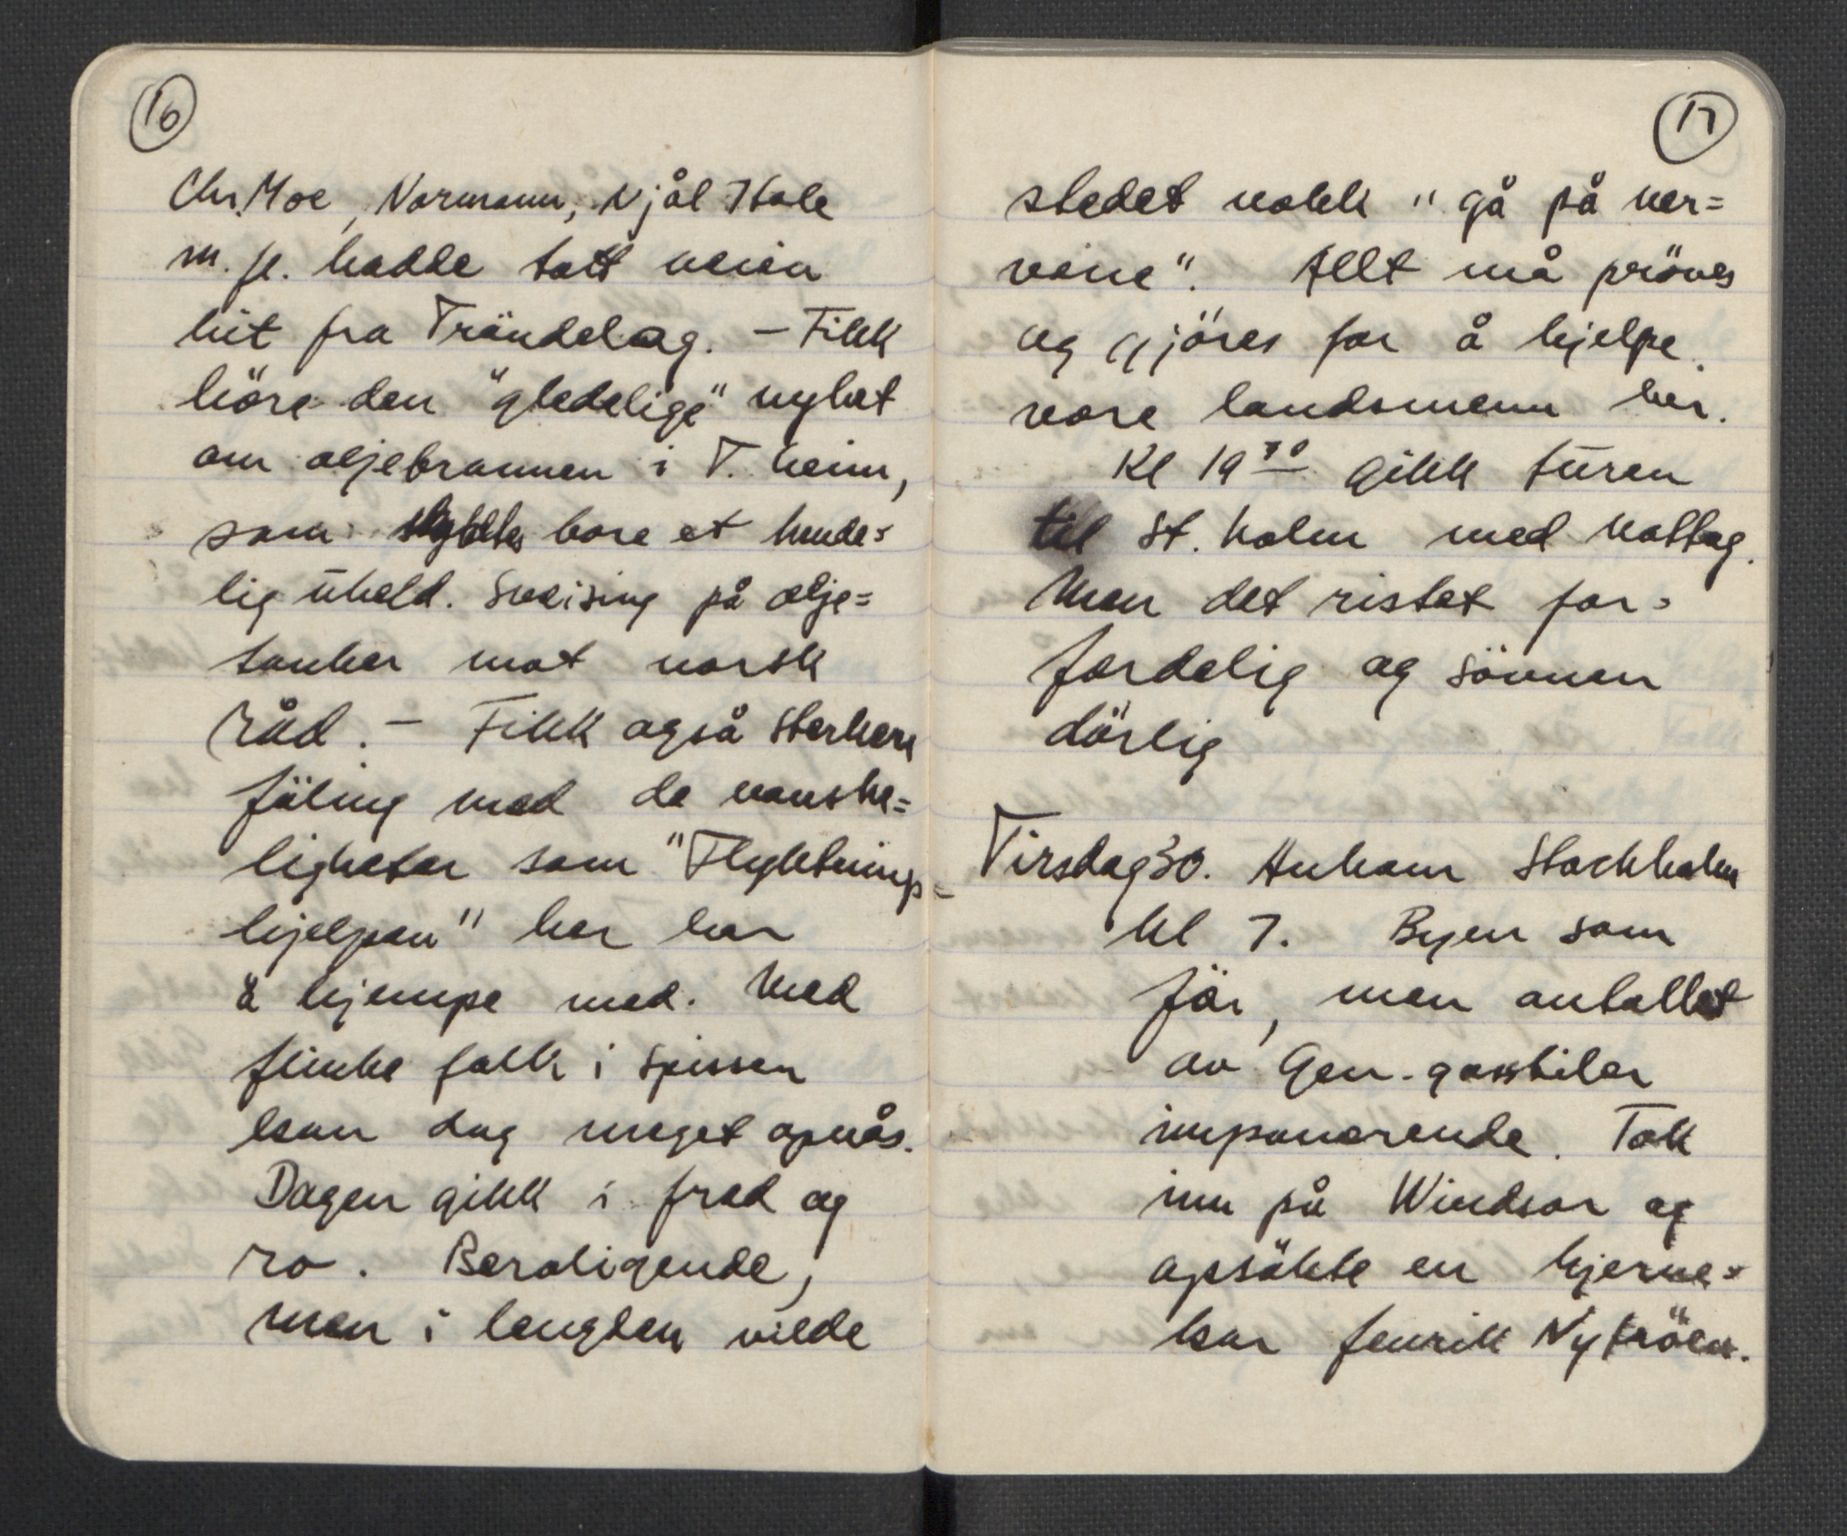 16
Chr. Moe, Normann, Njål Hole
m. fl. hadde tatt veien
hit fra Tröndelag. - Fikk
höre den "gledelige" nyhet
om oljebrannen i T. heim,
som skyldtes bare et hende=
lig uheld. Sveising på olje=
tanker mot norsk
råd. - Fikk også sterkere
föling med de vanske=
ligheter som "Flyktnings=
hjelpen" her har
å kjempe med. Med
flinke folk i spissen
kan dog meget opnås.
Dagen gikk i fred og
ro. Beroligende,
men i lengden vilde
17
stedet nokk "gå på ner=
vene". Allt må pröves
og gjöres for å hjelpe
våre landsmenn her.
Kl 19 30 gikk turen
til St. holm med nattog.
Men det ristet for=
ferdelig og sövnen
dårlig
Tirsdag 30. Ankom Stockholm
kl 7. Byen som
för, men antallet
av Gen. gassbiler
imponerende. Tok
inn på Windsor og
opsökte en hjerne=
kar fenrik Nytröen.